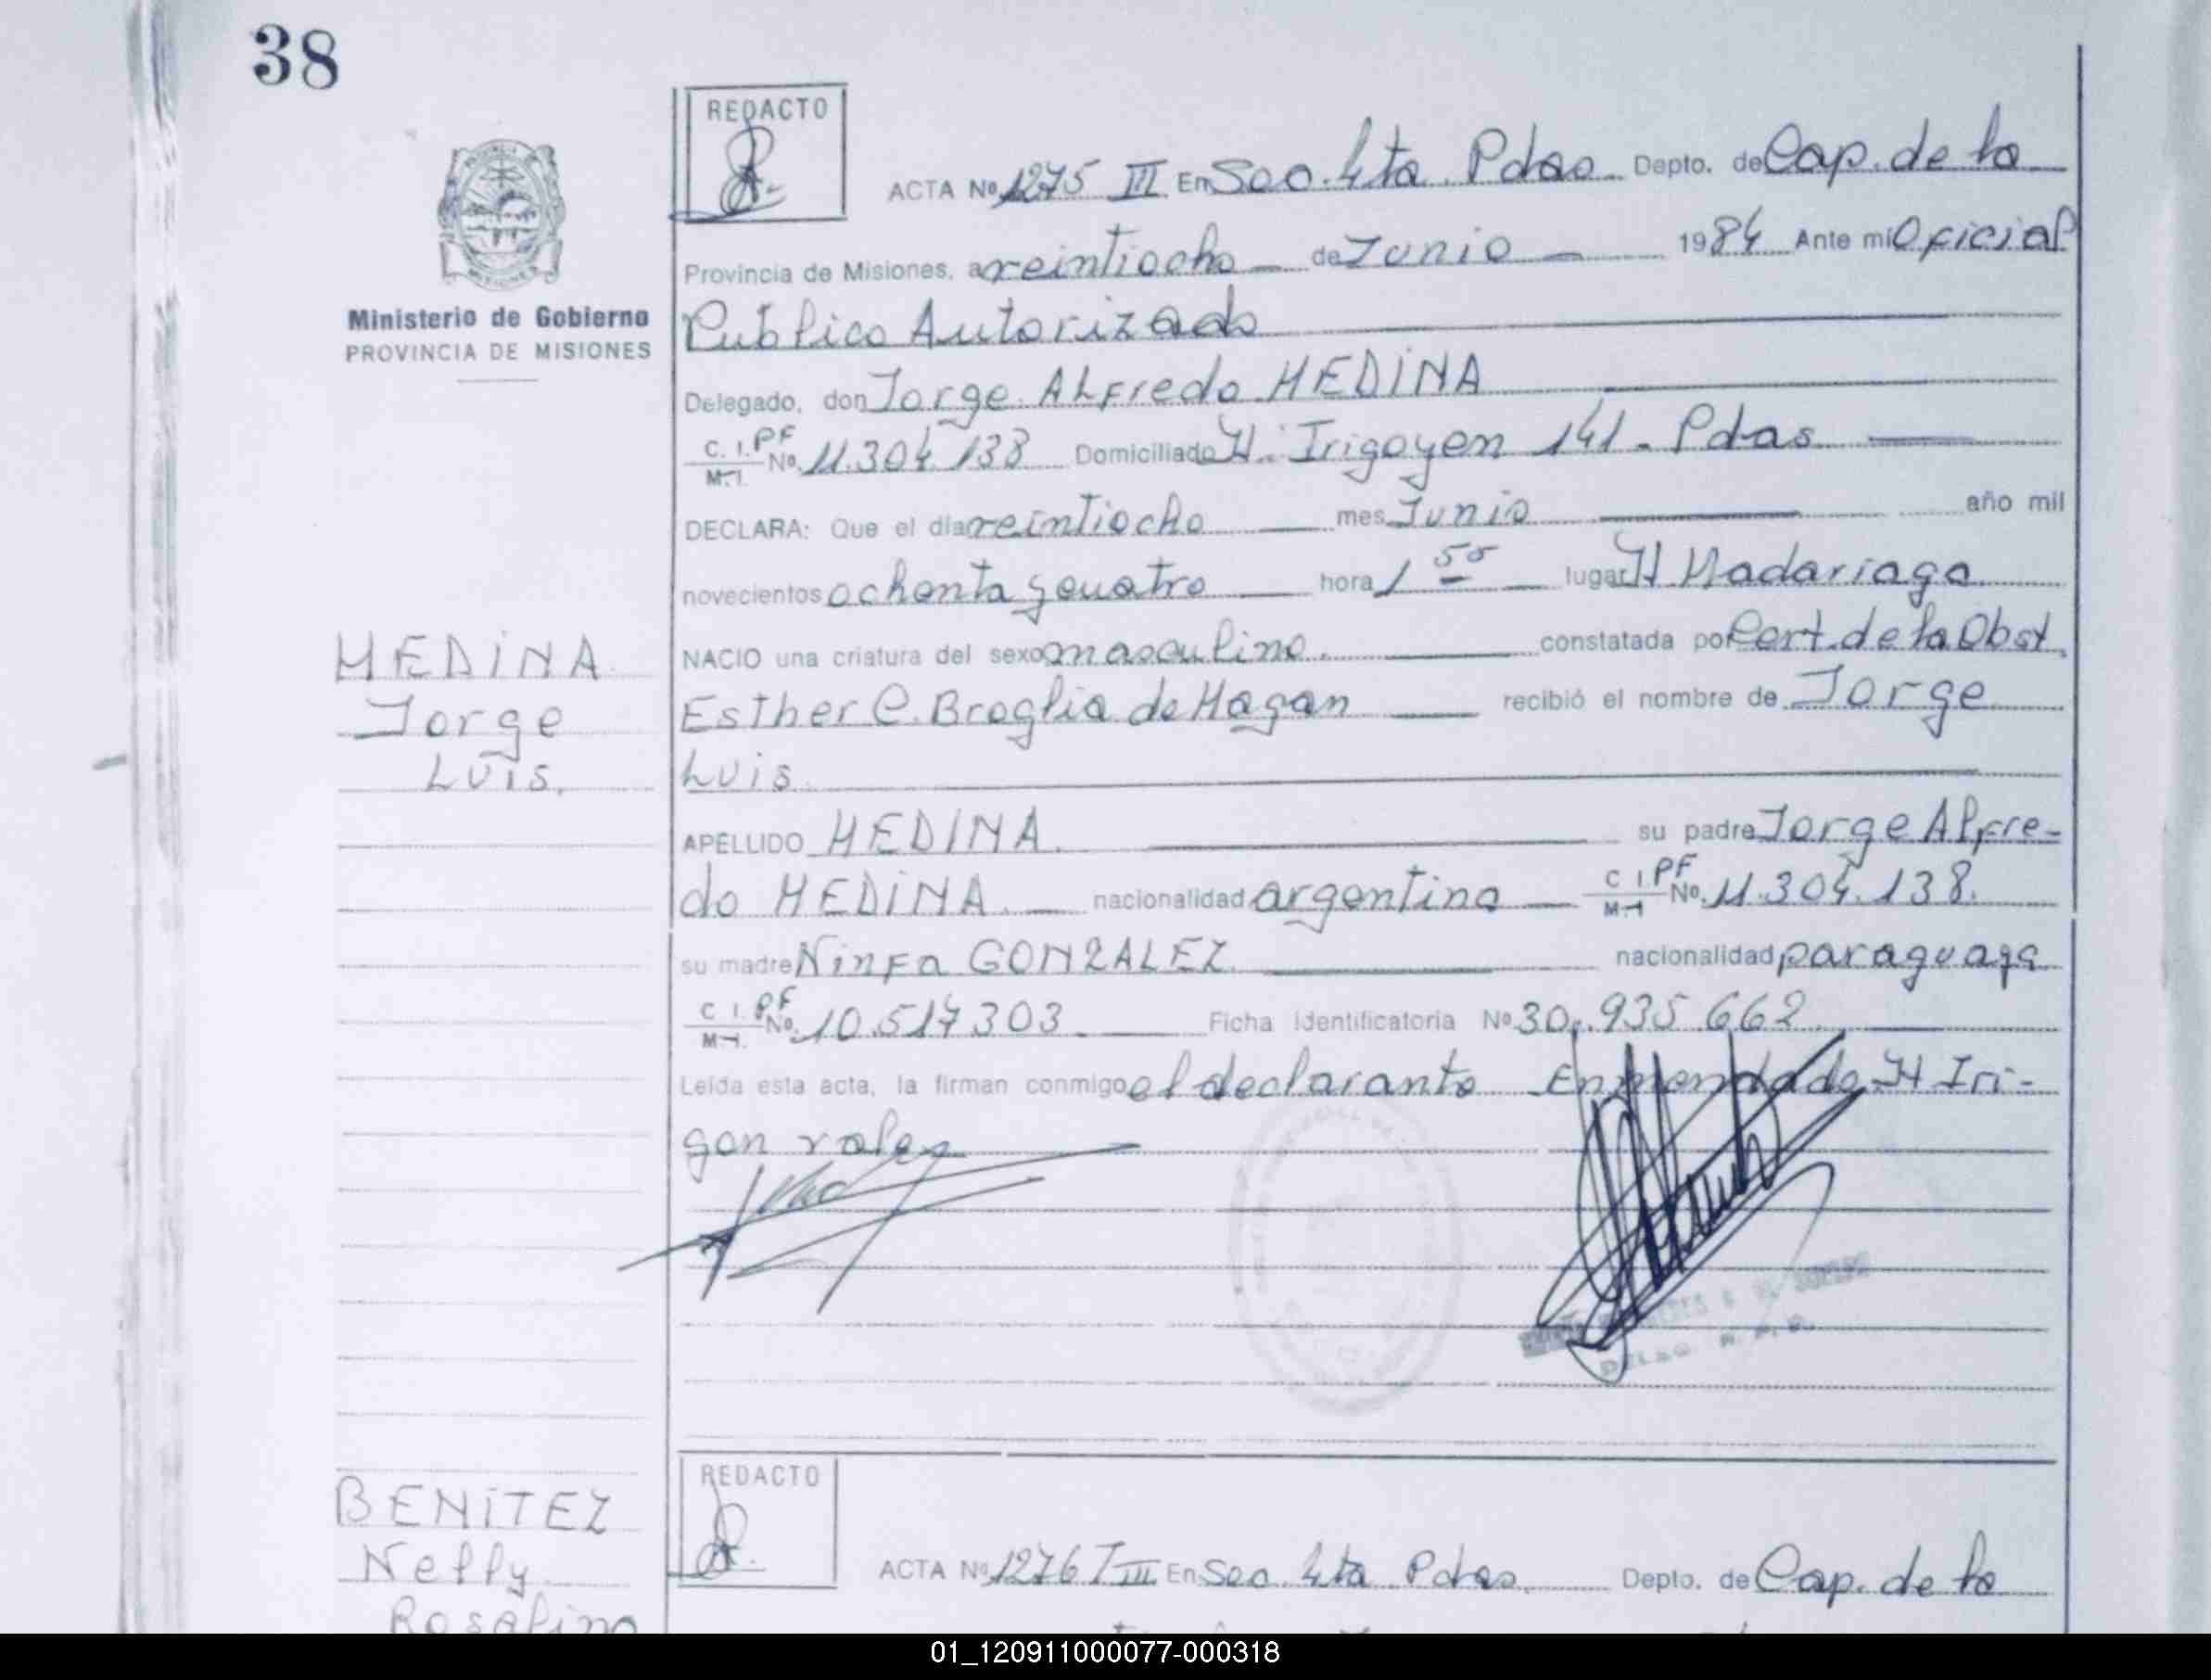 38
REDACTO
ACTA Nº 1275 III En Sec. 4ta Pdas Depto. de Cap. de la
Provincia de Misiones, a veintiocho de Junio 1984 Ante mi Oficial
Publico Autorizado
Ministerio de Gobierno
PROVINCIA DE MISIONES
Delegado, don Jorge ALFredo MEDINA
C. I. PF M. I. Nº 11.304.138 Domiciliado H. Irigoyen 141 - Pdas
DECLARA: Que el día veintiocho mes Junio año mil
novecientos ochenta y cuatro hora 1 55 lugar H Madariaga
NACIO una criatura del sexo masculino. constatada por Cert. de la Obst.
MEDINA
Jorge
Luis.
Esther C. Broglia de Hagan recibió el nombre de Jorge
Luis
APELLIDO MEDINA su padre Jorge Alfre-
do MEDINA nacionalidad argentina C I. PF M. I Nº. 11.304.138.
su madre Ninfa GONZALEZ nacionalidad paraguaya
C I. PF M I. Nº. 10.517.303 Ficha Identificatoria Nº 30.935 662
Leída esta acta, la firman conmigo el declarante Enmendado H Iri-
gon vale
BENITEZ
Nelly
Rosalina
REDACTO
ACTA Nº 1276 T III En Sec. 4ta Pdas. Depto. de Cap. de la
01_120911000077-000318